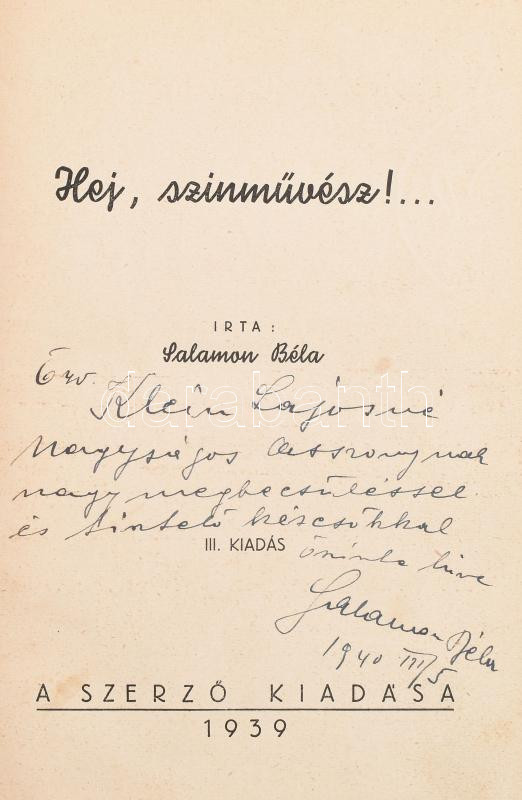 Hej, szinművész!...
IRTA:
Salamon Béla
Özv. Klein Lajosné
Nagyságos Asszonynak
nagy megbecsüléssel
és tisztelő kézcsókkal
III. KIADÁS
őszinte híve
Salamon Béla
1940 III/5
A SZERZŐ KIADÁSA
1939
darabanth